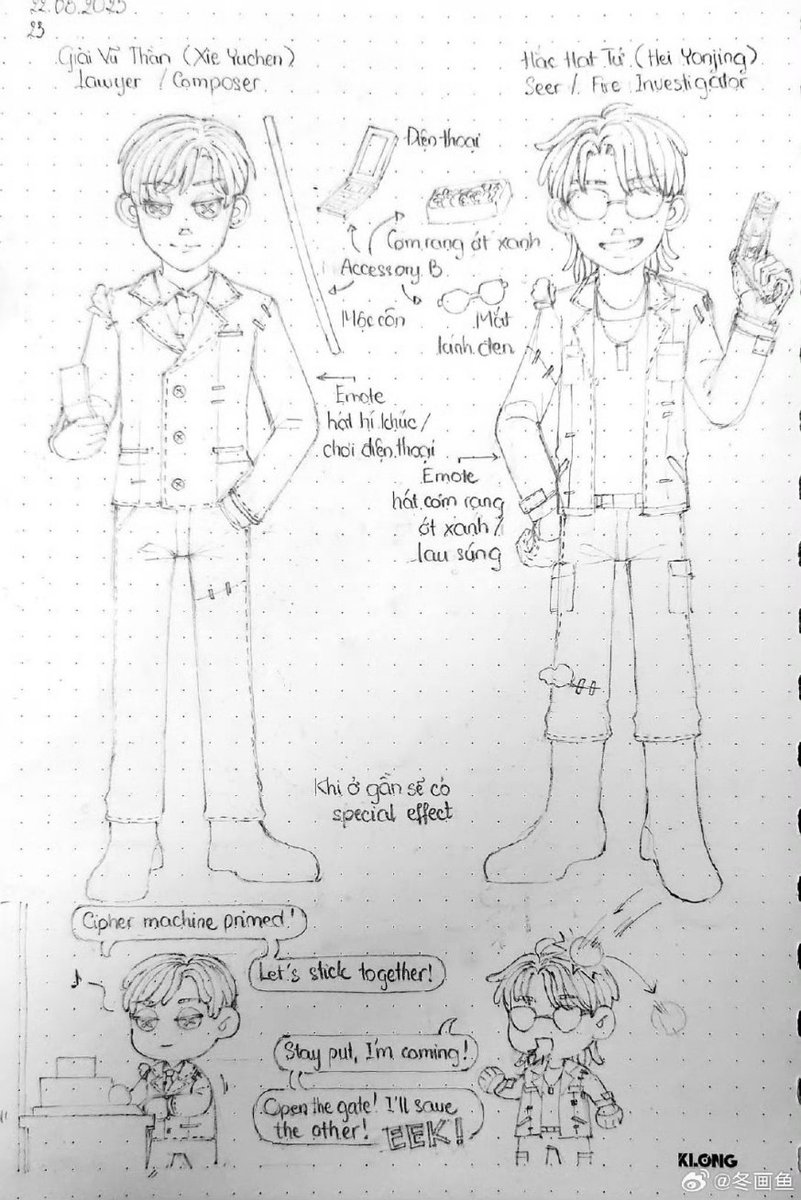 22.08.2025
23
Giải Vũ Thần (Xie Yuchen)
Lawyer / Composer
Hắc Hạt Tử (Hei Yanjing)
Seer / Fire Investigator
Điện thoại
Cơm rang ớt xanh
Accessory B
Mộc côn
Mắt
kính đen
Emote
hát hí khúc /
chơi điện thoại
Emote
hát cơm rang
ớt xanh /
lau súng
Khi ở gần sẽ có
special effect
Cipher machine primed!
Let's stick together!
Stay put, I'm coming!
Open the gate! I'll save
the other!
EEK!
KLONG
冬画鱼